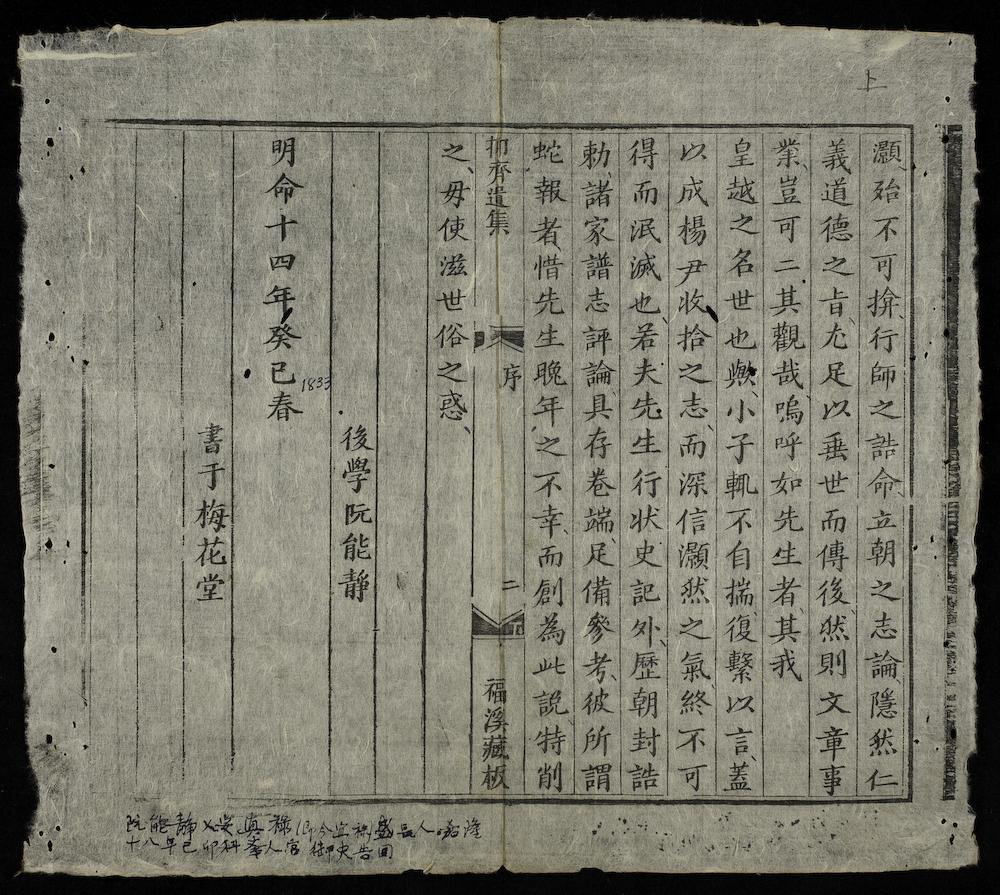 上
灝、殆不可揜、行師之誥命、立朝之志論、隱然仁
義道德之旨、尤足以垂世而傳後、然則文章事
業、豈可二其觀哉、嗚呼如先生者、其我
皇越之名世也歟、小子輒不自揣、復繫以言、蓋
以成楊尹收拾之志、而深信灝然之氣、終不可
得而泯滅也、若夫先生行狀、史記外、歷朝封誥
勅、諸家譜志評論、具存卷端、足備參考、彼所謂
蛇報者、惜先生晚年之不幸、而創為此說、特削
抑齊遺集
序
二
福溪藏板
之、毋使滋世俗之惑、
後學阮能靜
明命十四年癸巳春
1833
書于梅花堂
阮能靜 安真祿 今宜祿盛長人嘉隆
十八年己卯科舉人官御史告回